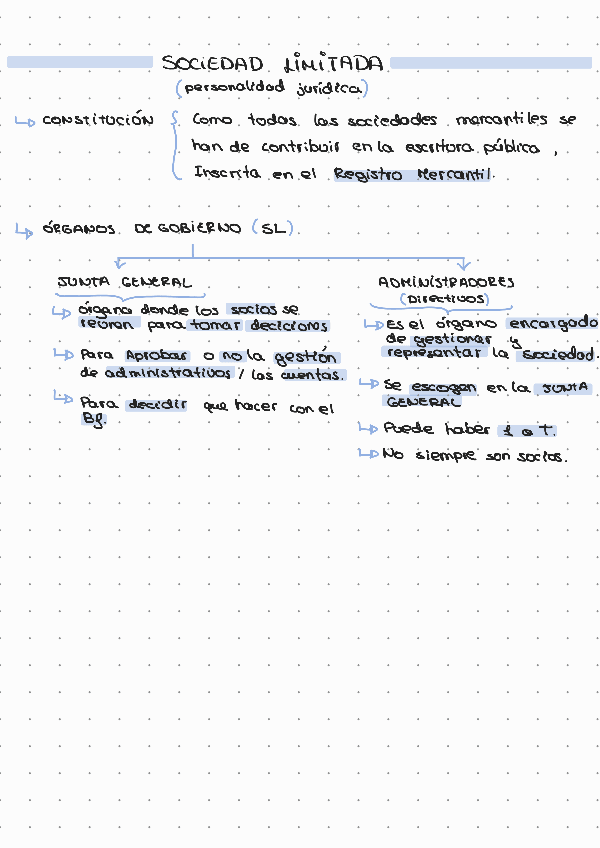 SOCIEDAD LIMITADA
(personalidad jurídica)
CONSTITUCIÓN
Como todas las sociedades mercantiles se
han de contribuir en la escritura pública,
Inscrita en el Registro Mercantil.
ÓRGANOS DE GOBIERNO (SL)
JUNTA GENERAL
órgano donde los socios se
reúnan para tomar decisiones
Para Aprobar o no la gestión
de administrativos / las cuentas.
Para decidir que hacer con el
Bf.
ADMINISTRADORES
(Directivos)
Es el órgano encargado
de gestionar y
representar la sociedad.
Se escogen en la JUNTA
GENERAL
Puede haber 1 o T.
No siempre son socios.